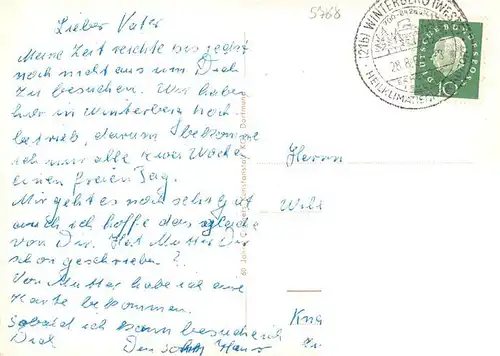 Lieber Vater
5768
Meine Zeit reichte bis jetzt
noch nicht aus um Dich
zu besuchen. Wir haben
hier in Winterberg Hoch
betrieb, darum bekomme
ich nur alle zwei Wochen
einen freien Tag.
Mir geht es noch sehr gut
auch ich hoffe das gleiche
von Dir. Hat Mutter Dir
schon geschrieben?
Von Mutter habe ich eine
Karte bekommen.
sobald ich kann besuche ich
Dich Dein Sohn Hans
(21b) WINTERBERG (WESTF
HEILKLIMA
DEUTSCHE BUNDESPOST
10
Herrn
Wil